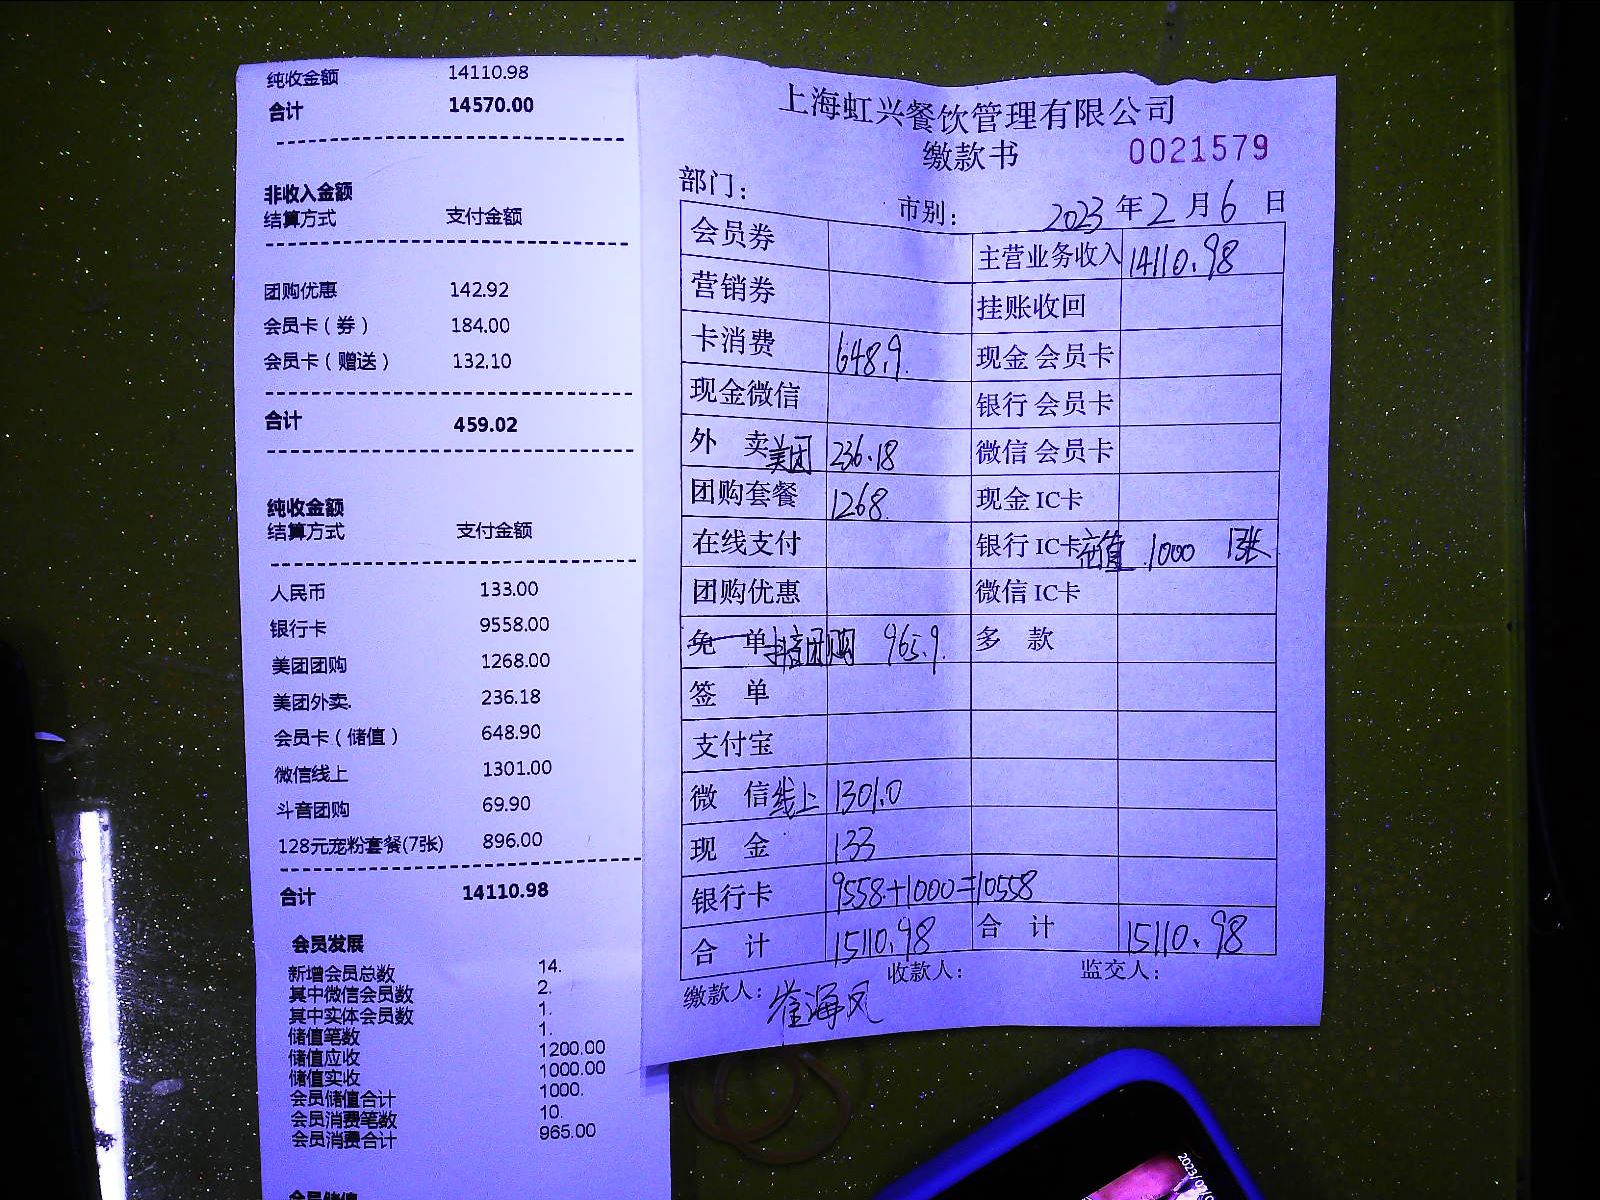 纯收金额 14110.98
合计 14570.00
非收入金额
结算方式 支付金额
团购优惠 142.92
会员卡（券） 184.00
会员卡（赠送） 132.10
合计 459.02
纯收金额
结算方式 支付金额
人民币 133.00
银行卡 9558.00
美团团购 1268.00
美团外卖. 236.18
会员卡（储值） 648.90
微信线上 1301.00
斗音团购 69.90
128元宠粉套餐(7张) 896.00
合计 14110.98
会员发展
新增会员总数 14.
其中微信会员数 2.
其中实体会员数 1.
储值笔数 1.
储值应收 1200.00
储值实收 1000.00
会员储值合计 1000.
会员消费笔数 10.
会员消费合计 965.00
会员储值
上海虹兴餐饮管理有限公司
缴款书 0021579
部门： 市别： 2023年2月6日
会员券 主营业务收入 14110.98
营销券 挂账收回
卡消费 648.9. 现金 会员卡
现金微信 银行 会员卡
外 卖美团 236.18 微信 会员卡
团购套餐 1268. 现金 IC卡
在线支付 银行 IC卡充值 1000 1张
团购优惠 微信 IC卡
免 单抖音团购 965.9. 多 款
签 单
支付宝
微 信线上 1301.0
现 金 133
银行卡 9558+1000=10558
合 计 15110.98 合 计 15110.98
缴款人：崔海凤 收款人： 监交人：